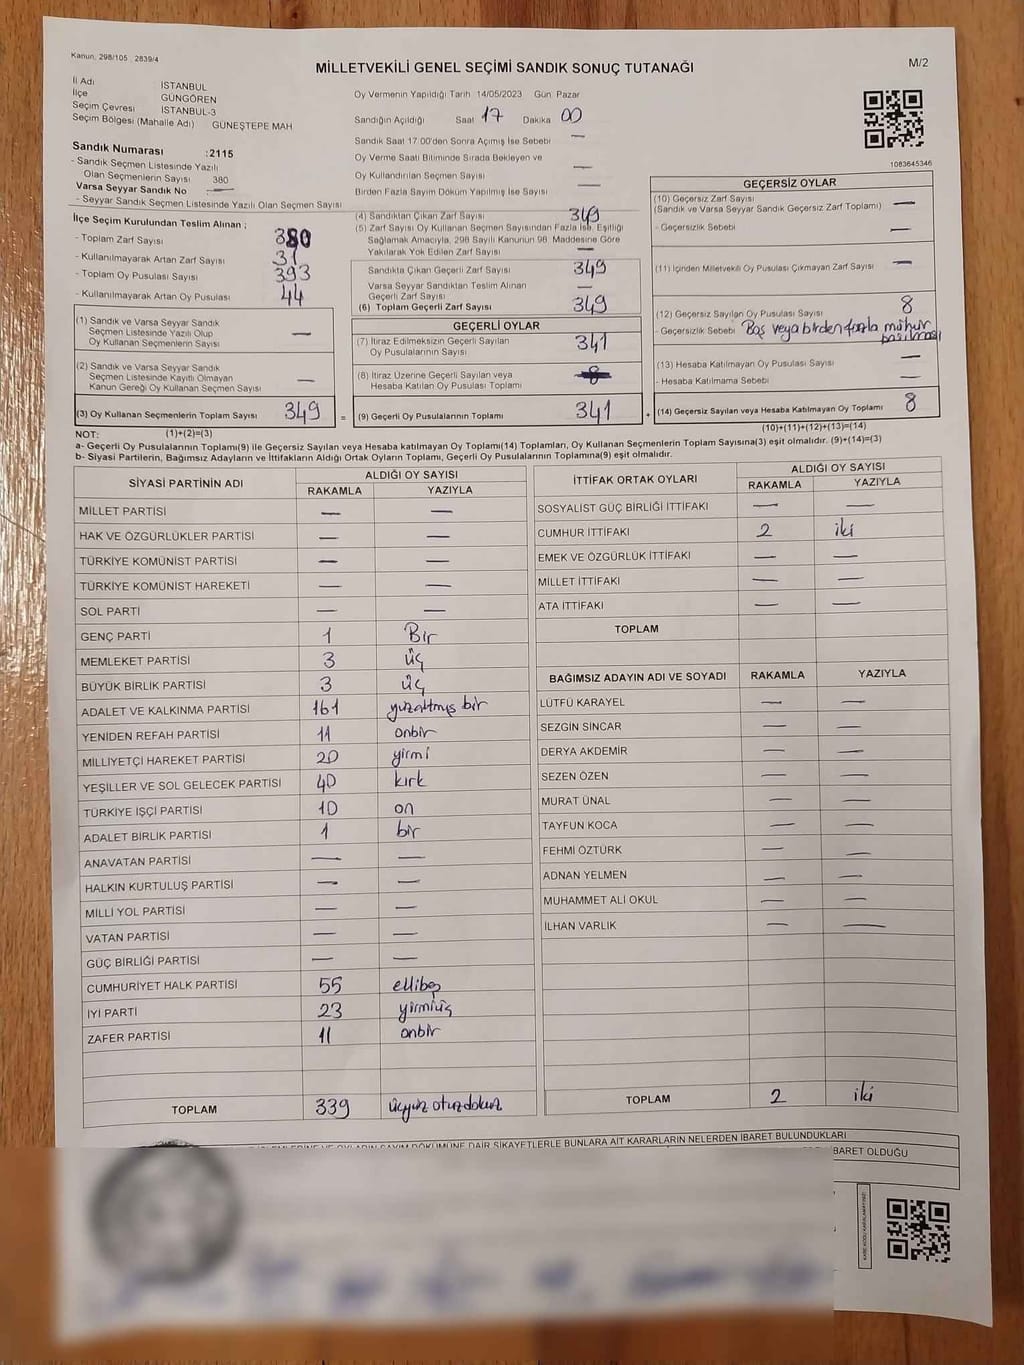 Kanun, 298/105 , 2839/4
MİLLETVEKİLİ GENEL SEÇİMİ SANDIK SONUÇ TUTANAĞI
M/2
İl Adı İSTANBUL
İlçe GÜNGÖREN
Seçim Çevresi İSTANBUL-3
Seçim Bölgesi (Mahalle Adı) GÜNEŞTEPE MAH
Sandık Numarası :2115
- Sandık Seçmen Listesinde Yazılı
Olan Seçmenlerin Sayısı 380
Varsa Seyyar Sandık No —
- Seyyar Sandık Seçmen Listesinde Yazılı Olan Seçmen Sayısı
Oy Vermenin Yapıldığı Tarih 14/05/2023 Gün Pazar
Sandığın Açıldığı Saat 17 Dakika 00
Sandık Saat 17.00'den Sonra Açımış İse Sebebi —
Oy Verme Saati Bitiminde Sırada Bekleyen ve
Oy Kullandırılan Seçmen Sayısı —
Birden Fazla Sayım Döküm Yapılmış İse Sayısı —
1083645346
İlçe Seçim Kurulundan Teslim Alınan ;
- Toplam Zarf Sayısı 380
- Kullanılmayarak Artan Zarf Sayısı 31
- Toplam Oy Pusulası Sayısı 393
- Kullanılmayarak Artan Oy Pusulası 44
(1) Sandık ve Varsa Seyyar Sandık
Seçmen Listesinde Yazılı Olup
Oy Kullanan Seçmenlerin Sayısı —
(2) Sandık ve Varsa Seyyar Sandık
Seçmen Listesinde Kayıtlı Olmayan
Kanun Gereği Oy Kullanan Seçmen Sayısı —
(3) Oy Kullanan Seçmenlerin Toplam Sayısı 349 =
(4) Sandıktan Çıkan Zarf Sayısı 349
(5) Zarf Sayısı Oy Kullanan Seçmen Sayısından Fazla İse, Eşitliği
Sağlamak Amacıyla, 298 Sayılı Kanunun 98. Maddesine Göre
Yakılarak Yok Edilen Zarf Sayısı —
Sandıkta Çıkan Geçerli Zarf Sayısı 349
Varsa Seyyar Sandıktan Teslim Alınan
Geçerli Zarf Sayısı —
(6) Toplam Geçerli Zarf Sayısı 349
GEÇERLİ OYLAR
(7) İtiraz Edilmeksizin Geçerli Sayılan
Oy Pusulalarının Sayısı 341
(8) İtiraz Üzerine Geçerli Sayılan veya
Hesaba Katılan Oy Pusulası Toplamı
(9) Geçerli Oy Pusulalarının Toplamı 341 +
GEÇERSİZ OYLAR
(10) Geçersiz Zarf Sayısı
(Sandık ve Varsa Seyyar Sandık Geçersiz Zarf Toplamı) —
- Geçersizlik Sebebi —
(11) İçinden Milletvekili Oy Pusulası Çıkmayan Zarf Sayısı —
(12) Geçersiz Sayılan Oy Pusulası Sayısı 8
- Geçersizlik Sebebi Boş veya birden fazla mühür
basılması
(13) Hesaba Katılmayan Oy Pusulası Sayısı —
- Hesaba Katılmama Sebebi —
(14) Geçersiz Sayılan veya Hesaba Katılmayan Oy Toplamı 8
NOT: (1)+(2)=(3) (10)+(11)+(12)+(13)=(14)
a- Geçerli Oy Pusulalarının Toplamı(9) ile Geçersiz Sayılan veya Hesaba katılmayan Oy Toplamı(14) Toplamları, Oy Kullanan Seçmenlerin Toplam Sayısına(3) eşit olmalıdır. (9)+(14)=(3)
b- Siyasi Partilerin, Bağımsız Adayların ve İttifakların Aldığı Ortak Oyların Toplamı, Geçerli Oy Pusulalarının Toplamına(9) eşit olmalıdır.
SİYASİ PARTİNİN ADI ALDIĞI OY SAYISI
RAKAMLA YAZIYLA
MİLLET PARTİSİ — —
HAK VE ÖZGÜRLÜKLER PARTİSİ — —
TÜRKİYE KOMÜNİST PARTİSİ — —
TÜRKİYE KOMÜNİST HAREKETİ — —
SOL PARTİ — —
GENÇ PARTİ 1 Bir
MEMLEKET PARTİSİ 3 üç
BÜYÜK BİRLİK PARTİSİ 3 üç
ADALET VE KALKINMA PARTİSİ 161 yüzaltmış bir
YENİDEN REFAH PARTİSİ 11 onbir
MİLLİYETÇİ HAREKET PARTİSİ 20 yirmi
YEŞİLLER VE SOL GELECEK PARTİSİ 40 kırk
TÜRKİYE İŞÇİ PARTİSİ 10 on
ADALET BİRLİK PARTİSİ 1 bir
ANAVATAN PARTİSİ — —
HALKIN KURTULUŞ PARTİSİ — —
MİLLİ YOL PARTİSİ — —
VATAN PARTİSİ — —
GÜÇ BİRLİĞİ PARTİSİ — —
CUMHURİYET HALK PARTİSİ 55 ellibeş
İYİ PARTİ 23 yirmiüç
ZAFER PARTİSİ 11 onbir
TOPLAM 339 üçyüz otuzdokuz
İTTİFAK ORTAK OYLARI ALDIĞI OY SAYISI
RAKAMLA YAZIYLA
SOSYALİST GÜÇ BİRLİĞİ İTTİFAKI — —
CUMHUR İTTİFAKI 2 iki
EMEK VE ÖZGÜRLÜK İTTİFAKI — —
MİLLET İTTİFAKI — —
ATA İTTİFAKI — —
TOPLAM
BAĞIMSIZ ADAYIN ADI VE SOYADI RAKAMLA YAZIYLA
LÜTFÜ KARAYEL — —
SEZGİN SİNCAR — —
DERYA AKDEMİR — —
SEZEN ÖZEN — —
MURAT ÜNAL — —
TAYFUN KOCA — —
FEHMİ ÖZTÜRK — —
ADNAN YELMEN — —
MUHAMMET ALİ OKUL — —
İLHAN VARLIK — —
TOPLAM 2 iki
SAYIM DÖKÜMÜNE DAİR ŞİKAYETLERLE BUNLARA AİT KARARLARIN NELERDEN İBARET BULUNDUKLARI
İBARET OLDUĞU
KARE KODU KARALAMAYINIZ!